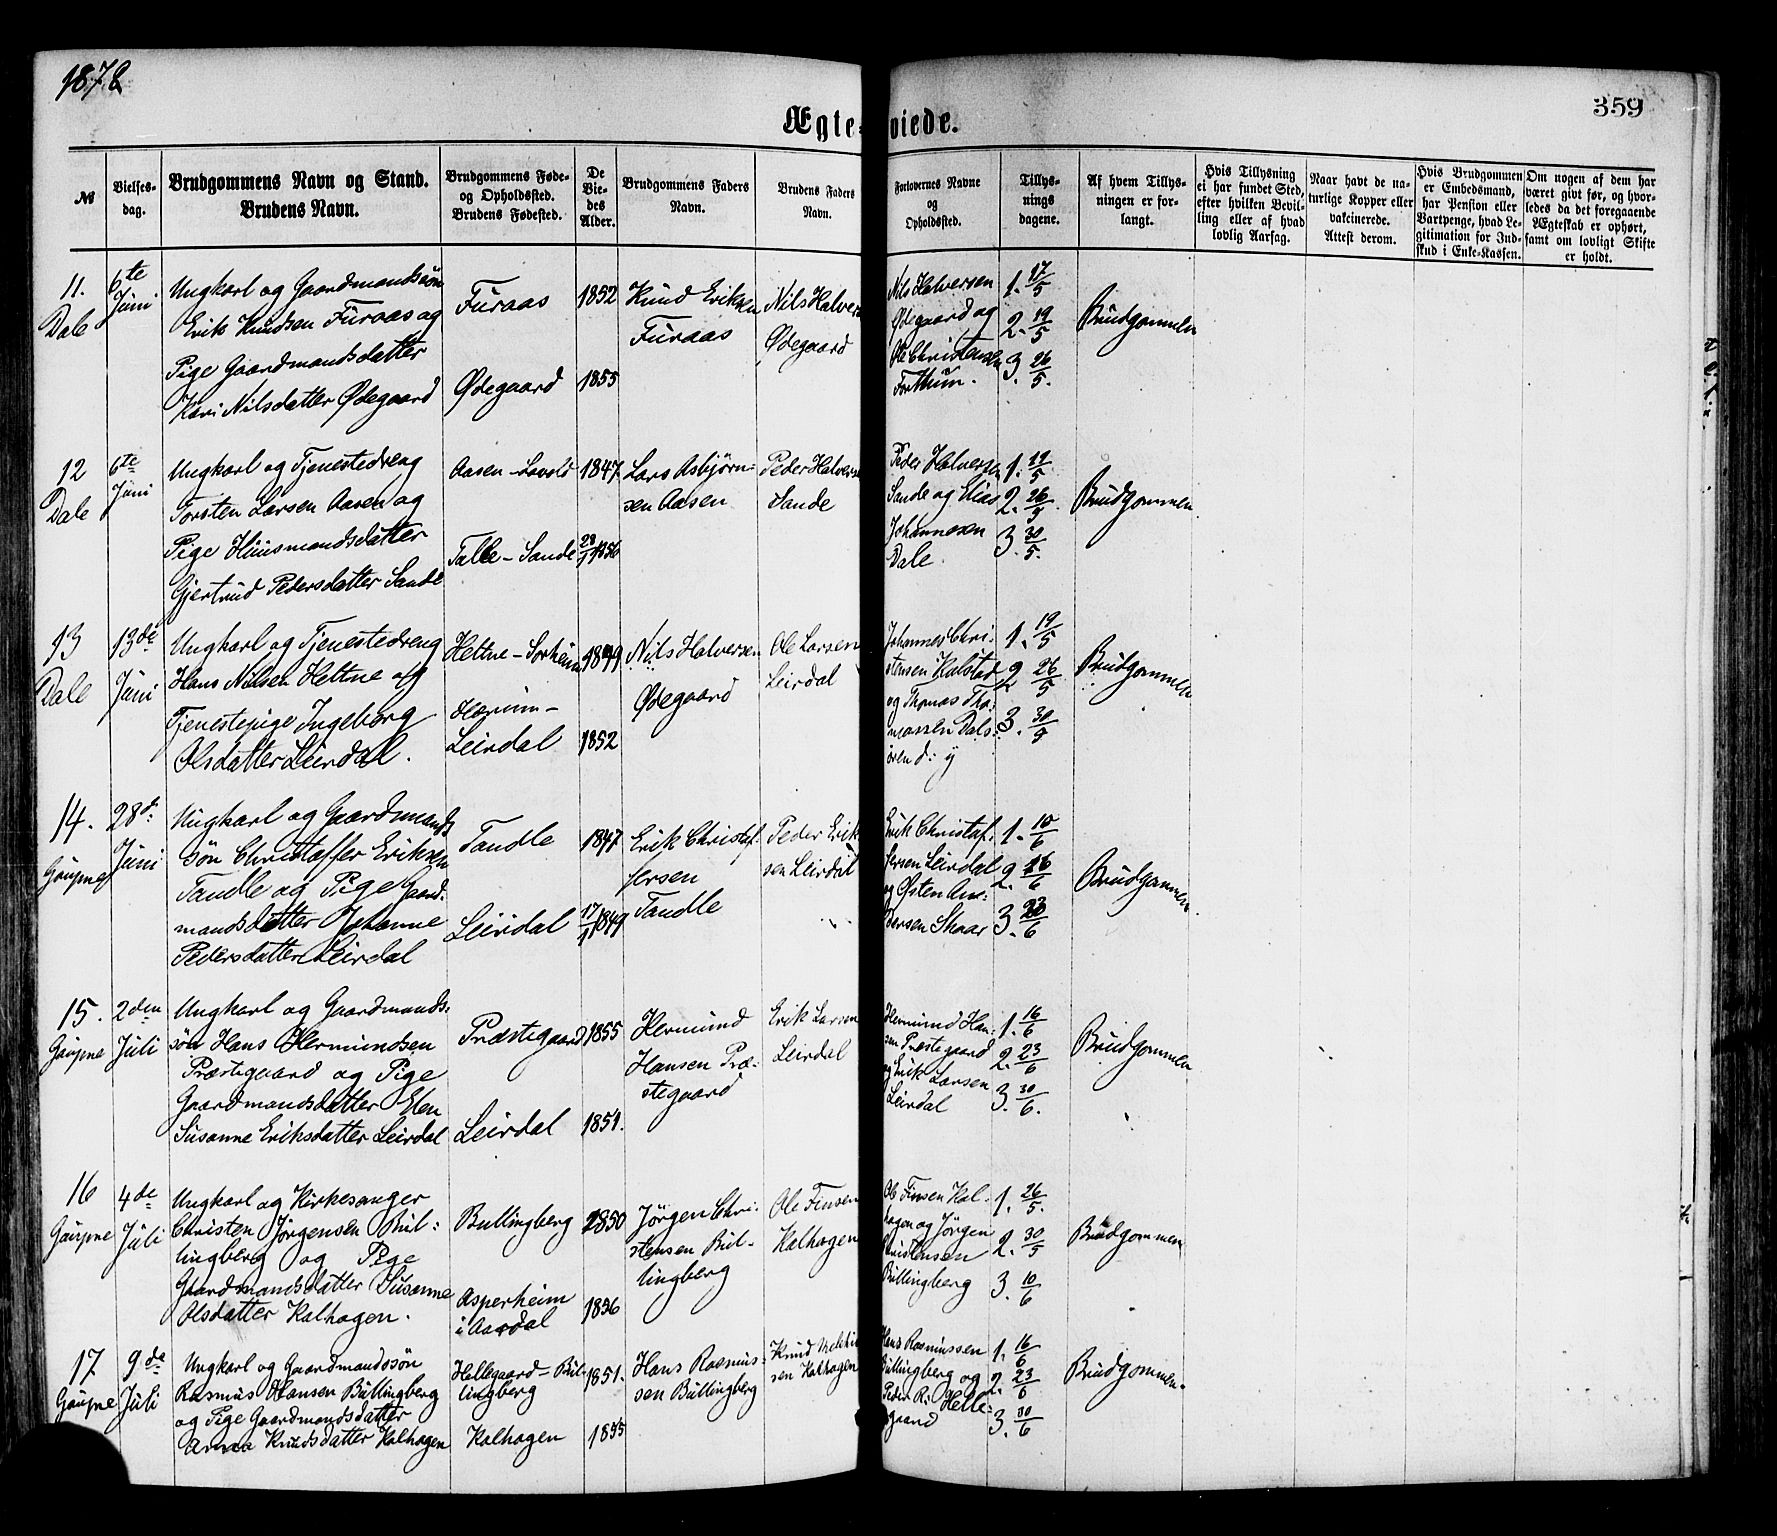 1878
359
Ægte-viede.
№
Vielses-dag.
Brudgommens Navn og Stand. Brudens Navn.
Brudgommens Føde- og Opholdssted. Brudens Fødested.
De Vie-des Alder.
Brudgommens Faders Navn.
Brudens Faders Navn.
Forlovernes Navne og Opholdssted.
Tillys-nings dagene.
Af hvem Tillys-ningen er for-langt.
Hvis Tillysning ei har fundet Sted, efter hvilken Bevil-ling eller af hvad lovlig Aarsag.
Naar havt de na-turlige Kopper eller vakcinerede. Attest derom.
Hvis Brudgommen er Embedsmand, har Pension eller Vartpenge, hvad Le-gitimation for Ind-skud i Enke-Kassen.
Om nogen af dem har været givt før, og hvor-ledes da det foregaaende Ægteskab er ophørt, samt om lovligt Skifte er holdt.
11. Dale
6te Juni
Ungkarl og Gaardmandssøn
Erik Knudsen Furaas og
Pige Gaardmandsdatter
Kari Nilsdatter Ødegaard
Furaas
Ødegaard
1852
1855
Knud Eriksen
Furaas
Nils Halvers
Ødegaard
Nils Halversen
Ødegaard og
Ole Christensen
Forthun.
1. 17/5
2. 19/5
3. 26/5.
Brudgommen
12 Dale
6te Juni
Ungkarl og Tjenestedreng
Torsten Larsen Aasen og
Pige Huusmandsdatter
Gjertrud Pedersdatter Sande
Aasen - 
Talle - Sande
1847
1856
Lars Asbjørn-
sen Aasen
Peder Halvers
Sande
Peder Halversen
Sande og Elias
Johannesen
Dale
1. 19/5
2. 26/5
3. 30/5.
Brudgommen.
13 Dale
13de Juni
Ungkarl og Tjenestedreng
Hans Nilsen Heltne og
Tjenestepige Ingeborg
Olsdatter Leirdal.
Heltne - Sorheim
Leirdal
1849
1852
Nils Halversen
Ødegaard
Ole Larsen
Leirdal
Johannes Chri-
stensen Kalstad
og Thomas Tho-
massen Dals-
øren d: y
1. 19/5
2. 26/5
3. 30/5
Brudgommen
14. Gaupne
28d: Juni
Ungkarl og Gaardmands
søn Christoffer Eriksen
Tandle og Pige Gaard-
mandsdatter Johanne
Pedersdatter Leirdal
Tandle
Leirdal
1847
17/1 1849
Erik Christof-
fersen
Tandle
Peder Erik
sen Leirdal
Erik Christof-
fersen Leirdal
og Østen An-
dersen Skaar
1. 10/6
2. 16/6
3. 23/6
Brudgommen
15. Gaupne
2den Juli
Ungkarl og Gaardmands-
søn Hans Hermundsen
Præstegaard og Pige
Gaardmandsdatter Elen
Susanne Eriksdatter Leirdal
Præstegaard
Leirdal
1855
1851.
Hermund
Hansen Præ-
stegaard
Erik Larsen
Leirdal
Hermund Han-
sen Præstegaard
og Erik Larsen
Leirdal
1. 16/6
2. 23/6
3. 30/6.
Brudgommen
16 Gaupne
4de Juli
Ungkarl og Kirkesanger
Christen Jørgensen Bul-
lingberg og Pige
Gaardmandsdatter Susanne
Olsdatter Kalhagen.
Bullingberg
Asperheim
i Aardal
1850
1856
Jørgen Chri-
stensen Bul-
lingberg
Ole Finsen
Kalhagen
Ole Finsen Kal-
hagen og Jørgen
Christensen
Bullingberg
1. 26/5.
2. 30/5
3. 10/6
Brudgommen
17 Gaupne
9de Juli
Ungkarl og Gaardmandssøn
Rasmus Hansen Bullingberg
og Pige Gaardmandsdatter
Anna Knudsdatter Kalhagen
Hellegaard - Bul-
lingberg
Kalhagen
1851.
1855
Hans Rasmus-
sen Bullingberg
Knud
sen Kalhagen
Hans Rasmussen
Bullingberg og
Peder R. Helle-
gaard
1. 16/6
2. 23/6
3. 30/6
Brudgommen.